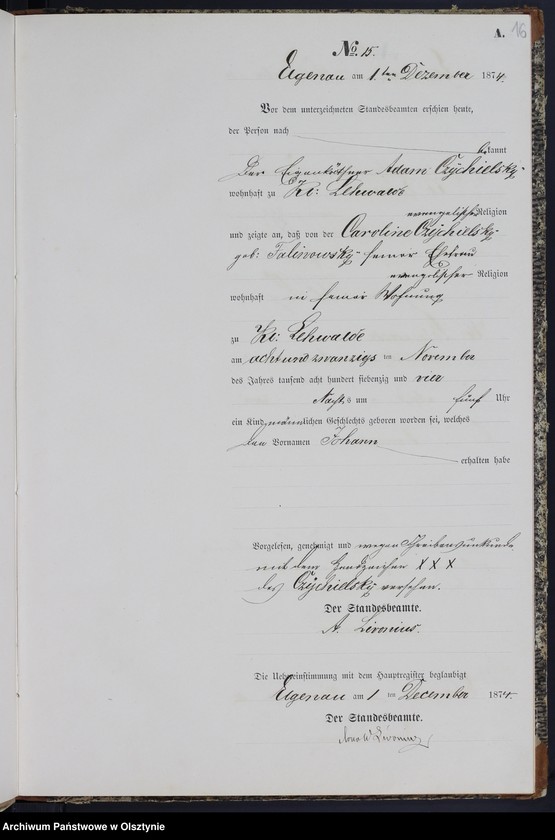 A. 16
No. 15.
Eigenau am 1ten Dezember 1874.
Vor dem unterzeichneten Standesbeamten erschien heute,
der Person nach
bekannt
Der Eigenkäthner Adam Czÿchielsky
wohnhaft zu Kl: Lehwalde
evangelischer Religion
und zeigte an, daß von der Caroline Czÿchielsky
geb: Talinowsky seiner Ehefrau
evangelischer Religion
wohnhaft in seiner Wohnung
zu Kl: Lehwalde
am achtundzwanzigsten November
des Jahres tausend acht hundert siebenzig und vier
Nachts um fünf Uhr
ein Kind männlichen Geschlechts geboren worden sei, welches
den Vornamen Johann
erhalten habe
Vorgelesen, genehmigt und wegen Schreibensunkunde
mit dem Handzeichen X X X
des Czÿchielsky versehen.
Der Standesbeamte.
A. Livonius.
Die Uebereinstimmung mit dem Hauptregister beglaubigt
Eigenau am 1 ten December 1874.
Der Standesbeamte.
Livonius
Archiwum Państwowe w Olsztynie